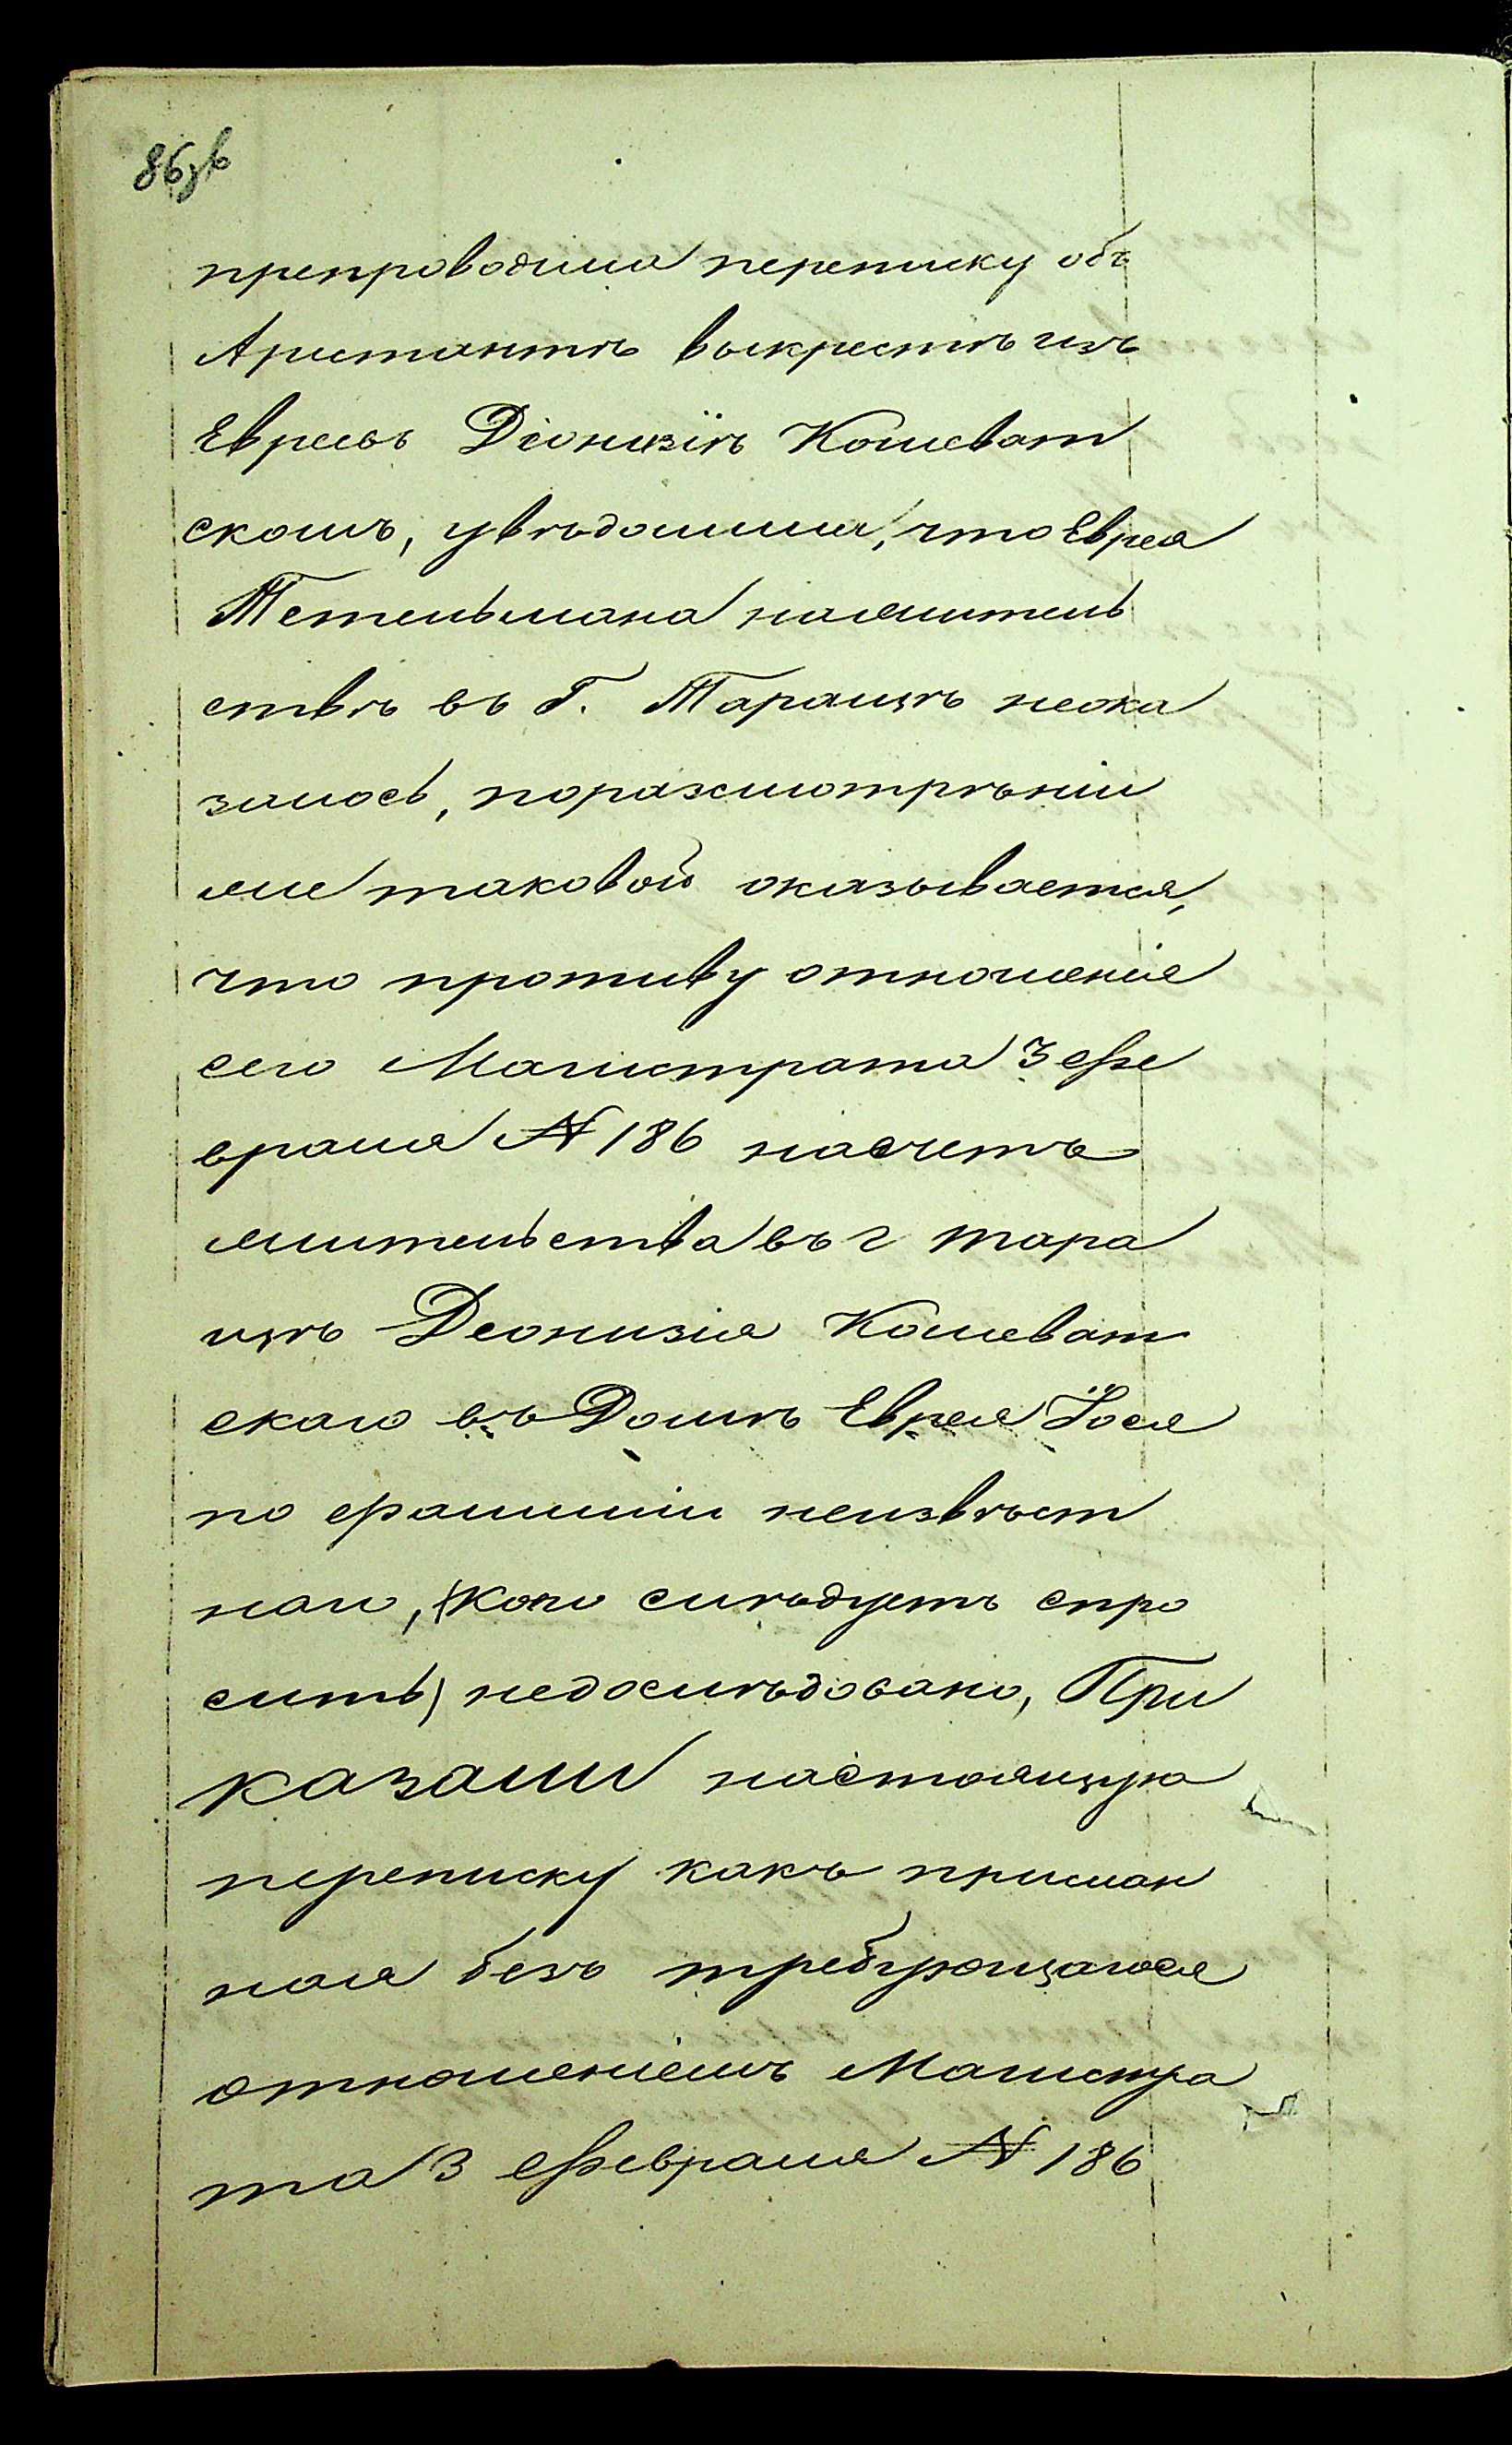 86зв
препроводила переписку объ
Арестантѣ выкрестѣ изъ
Евреевъ Діонизіѣ Кошеват
скомъ, увѣдомила, что Еврея
Тетельмана нажитель
ствѣ въ Г. Таращѣ неока
залось, поразсмотрѣніи
же таковой оказывается,
что противу отношенія
сего Магистрата 3 Фе
враля № 186 насчетъ
жительства въ г Тара
щѣ Деонизія Кошеват
скаго въ Домѣ Еврея Іося
по фамиліи неизвѣст
наго, (кого слѣдуетъ спро
сить) недослѣдовано, При
казали настоящую
переписку какъ прислан
ная безъ требующагося
отношеніемъ Магистра
та 3 Февраля № 186